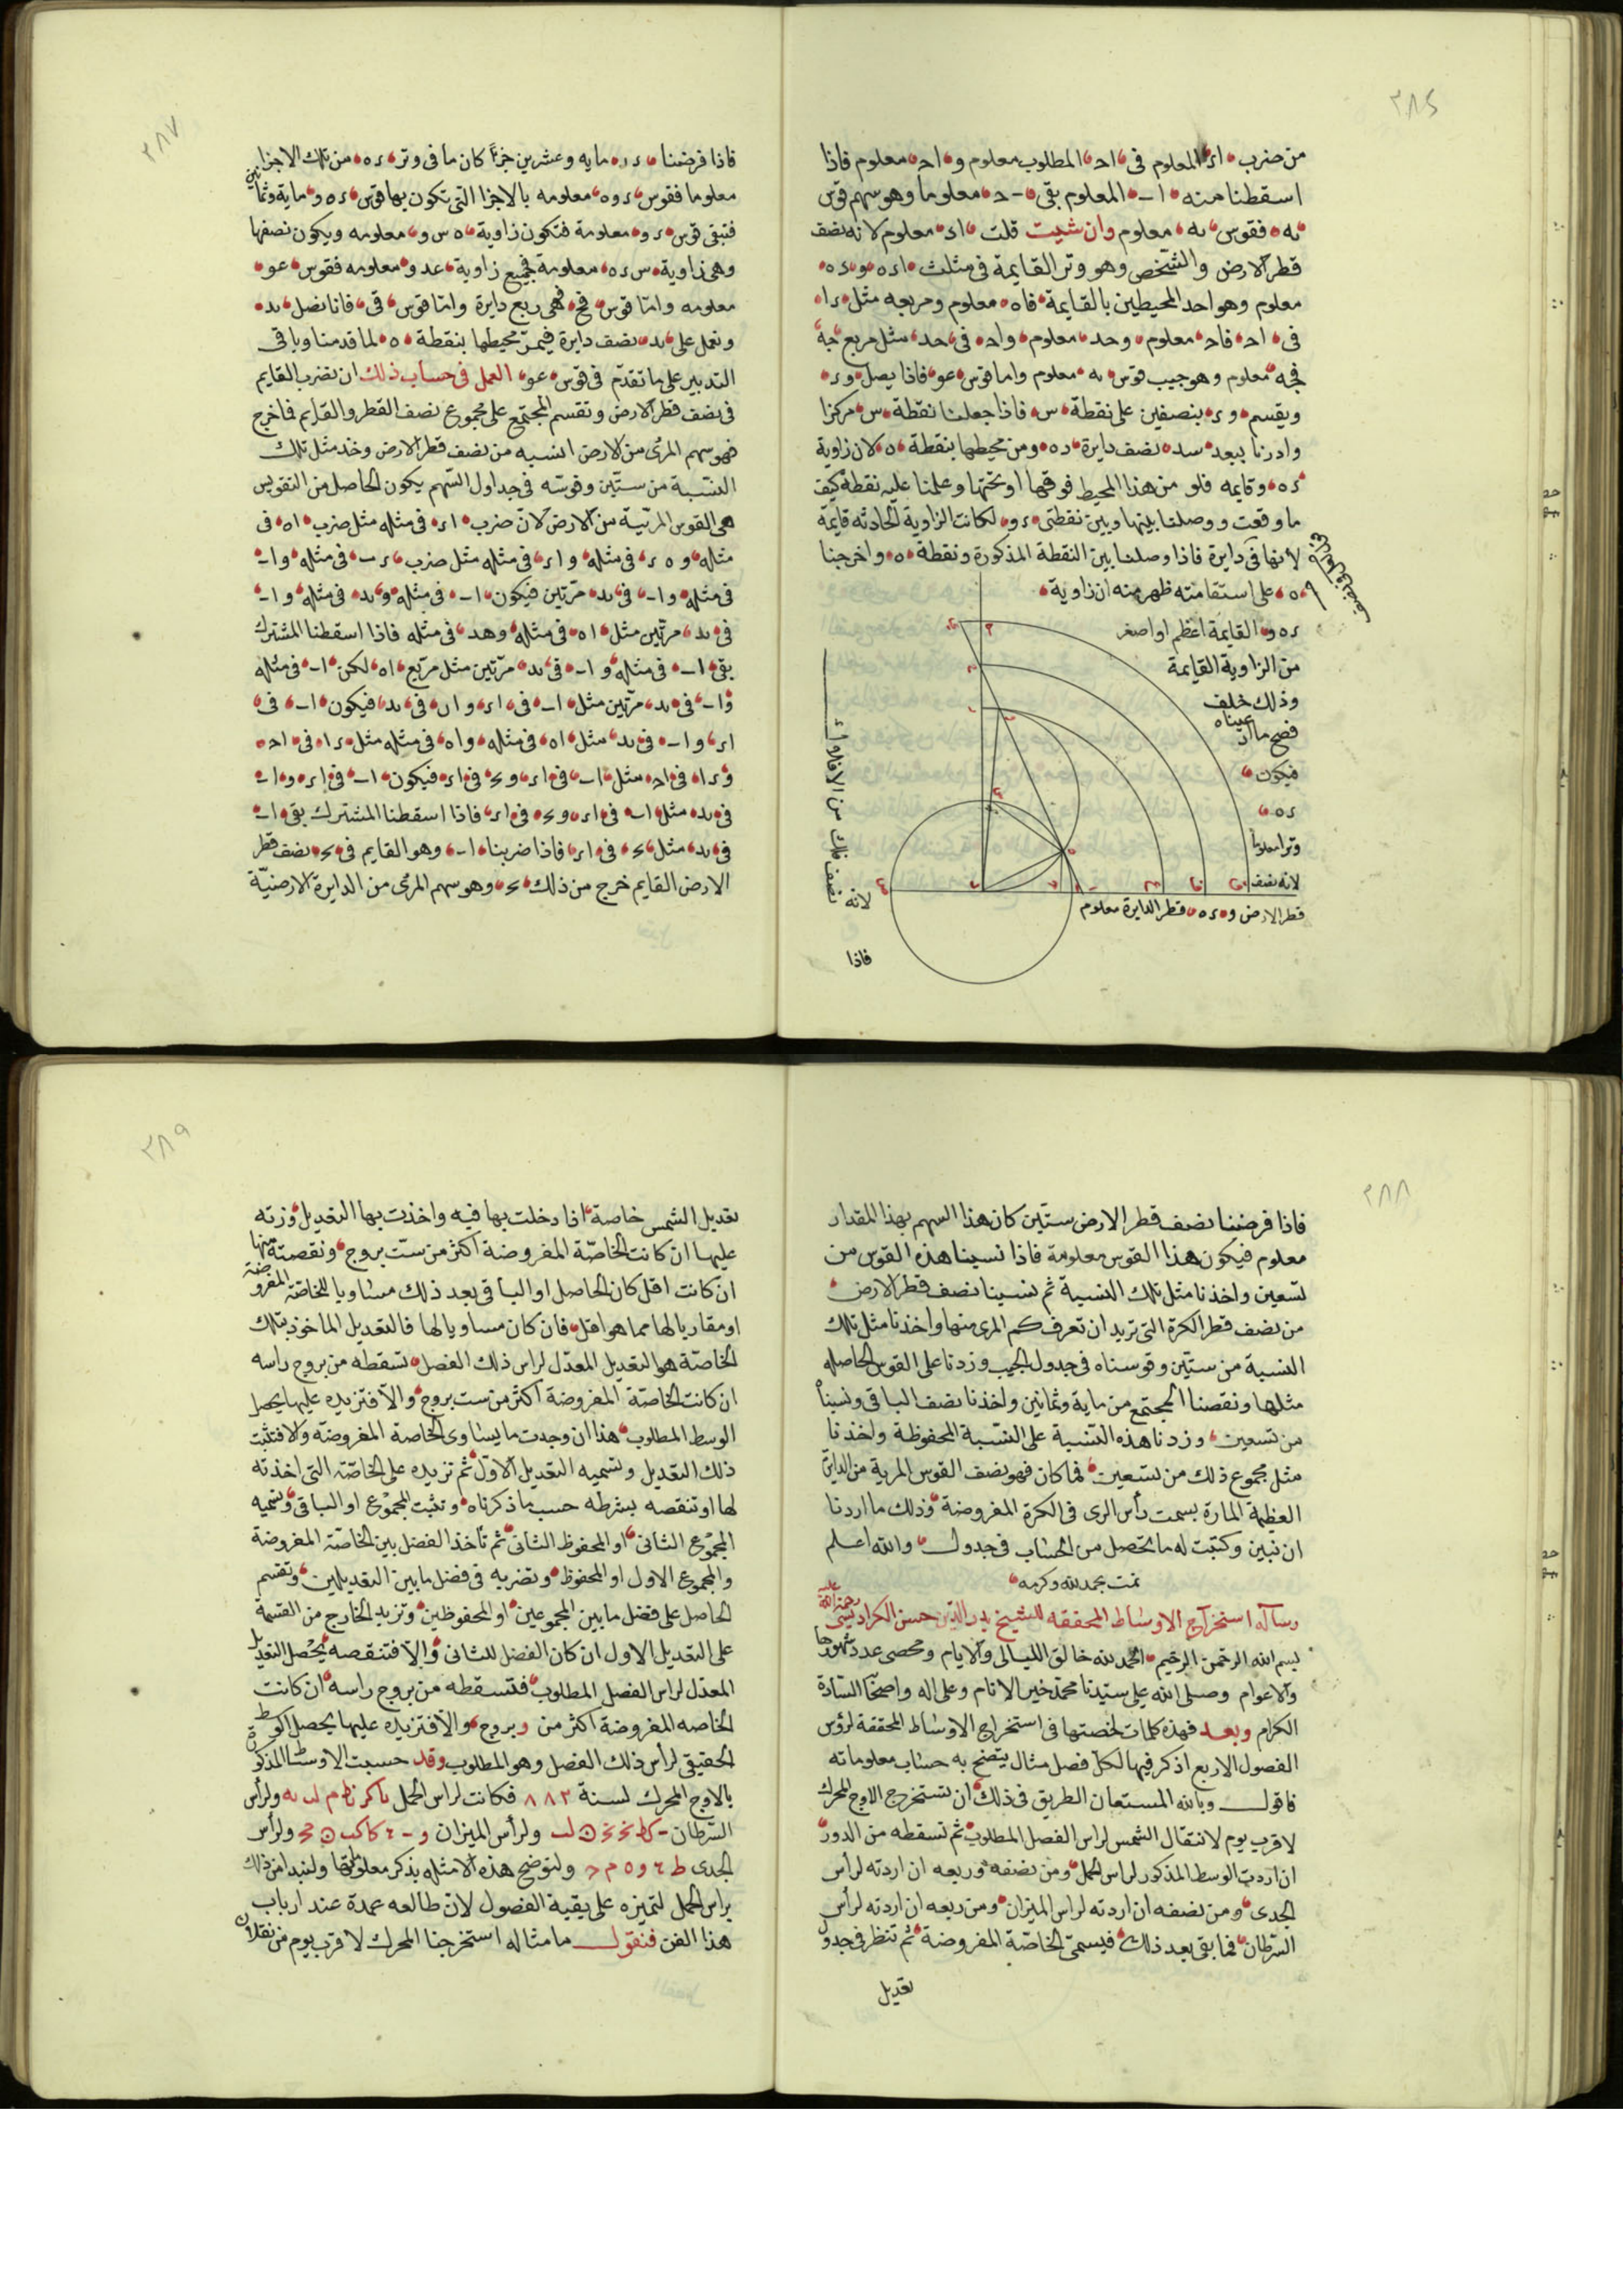 ٢٨٦
من ضرب اء المعلوم في اح المطلوب معلوم و اح معلوم فاذا
اسقطنا منه ا ب المعلوم بقى ب ح معلوما وهو سهم قوس
به فقوس به معلوم وان شيت قلت اء معلوم لانه نصف
قطر الارض والشخص وهو وتر القايمة في مثلث اءه و ءه
معلوم وهو احد المحيطين بالقايمة فاه معلوم ومربعه مثل ءا
في اح فاح معلوم وحد معلوم واح في حد مثل مربع حه
فحه معلوم وهو جيب قوس به معلوم واما قوس عو فاذا يصل وء
ويقسم وء بنصفين على نقطة س فاذا جعلنا نقطة س مركزا
وادرنا ببعد سد نصف دايرة ده ومن محيطها بنقطة ه لان زاوية
ءه وقايمه فلو من هذا المحيط فوقها او تحتها وعلمنا عليه نقطة كيف
ما وقعت ووصلنا بينها وبين نقطتى ء و لكانت الزاوية الحادثه قايمة
لانها في دايرة فاذا وصلنا بين النقطة المذكورة ونقطة ه واخرجنا
ه على استقامته ظهر منه ان زاوية
ءه و القايمة اعظم او اصغر
من الزاوية القايمة
وذلك خلف
فصح ما ادعيناه
فيكون
ءه
وترا معلوما
لانه نصف
قطر الارض و ءه قطر الدايرة معلوم
نصف فلك من الافلاك
لانه
فاذا
٢٨٧
فاذا فرضنا ءر مايه وعشرين جزءًا كان ما فى وتر ءه من تلك الاجزا
معلوما فقوس ءوه معلومه بالاجزا التى تكون بها قوس ءه و ماية وثمانين
فتبقى قوس ءو معلومة فتكون زاوية ه س و معلومه ويكون نصفها
وهى زاوية س ءه معلومة فجميع زاوية عدو معلومه فقوس عو
معلومه واما قوس فح فهى ربع دايرة واما قوس قى فانا نصل بد
ونعمل على بد نصف دايرة فيمر محيطها بنقطة ه لما قدمنا وباقى
التدبير على ما تقدم فى قوس عو العمل فى حساب ذلك ان نضرب القايم
فى نصف قطر الارض ونقسم المجتمع على مجموع نصف القطر والقايم فما خرج
فهو سهم المرى من الارض انسبه من نصف قطر الارض وخذ مثل تلك
النسبة من ستين وقوسه فى جداول السهم يكون الحاصل من التقويس
هى القوس المرئية من الارض لان ضرب اء فى مثله مثل ضرب اه فى
مثله و ه ء فى مثله و اء فى مثله مثل ضرب ء ب فى مثله و اب
فى مثله و اب فى بد مرتين فيكون اب فى مثله و بد فى مثله و اب
فى بد مرتين مثل اه فى مثله وهد فى مثله فاذا اسقطنا المشترك
بقى اب فى مثله و اب فى بد مرتين مثل مربع اه لكن اب فى مثله
و اب فى بد مرتين مثل اب فى اء و اب فى بد فيكون اب فى
اء و اب فى بد مثل اه فى مثله واه فى مثله مثل ءا فى اح
و ءا فى اح مثل اب فى اء و بح فى اء فيكون اب فى اء و اب
فى بد مثل اب فى اء و بح فى اء فاذا اسقطنا المشترك بقى اب
فى بد مثل بح فى اء فاذا ضربنا اب وهو القايم فى بد نصف قطر
الارض القايم خرج من ذلك بح وهو سهم المرى من الدايرة الارضيّة
٢٨٨
فاذا فرضنا نصف قطر الارض ستّين كان هذا السهم بهذا المقدار
معلوم فيكون هذا القوس معلومة فاذا نسبنا هذه القوس من
تسعين واخذنا مثل تلك النسبة ثم نسبنا نصف قطر الارض
من نصف قطر الكرة التى تريد ان تعرف كم المرى منها واخذنا مثل تلك
النسبة من ستّين وقوسناه فى جدول الجيب وزدنا على القوس الحاصله
مثلها ونقصنا المجتمع من ماية وثمانين واخذنا نصف الباقى ونسبناه
من تسعين وزدنا هذه النسبة على النسبة المحفوظة واخذنا
مثل مجموع ذلك من تسعين فما كان فهو نصف القوس المرية من الدايرة
العظيمة المارة بسمت رأس الرى فى الكرة المفروضة وذلك ما اردنا
ان نبين وكتبت له ما يتحصل من الحساب فى جدول والله اعلم
تمت بحمد الله وكرمه
رساله استخراج الاوساط المحققه للشيخ بدر الدين حسن الكراديسى رحمة الله عليه
بسم الله الرحمن الرحيم الحمد لله خالق الليالى والايام ومحصى عدد شهورها
والاعوام وصلى الله على سيّدنا محمّد خير الانام وعلى اله واصحابه السادة
الكرام وبعد فهذه كلمات لخصتها فى استخراج الاوساط المحققة لرؤس
الفصول الاربع اذكر فيها لكل فصل مثال يتضح به حساب معلوماته
فاقول وبالله المستعان الطريق فى ذلك ان تستخرج الاوج المحرك
لاقرب يوم لانتقال الشمس لراس الفصل المطلوب ثم تسقطه من الدور
ان اردت الوسط المذكور لراس الحمل ومن نصفه وربعه ان اردته لرأس
الجدى ومن نصفه ان اردته لراس الميزان ومن ربعه ان اردته لرأس
السرطان فما بقى بعد ذلك فيسمّى الخاصّة المفروضة ثم تنظر فى جدول
تعديل
٢٨٩
تعديل الشمس خاصة اذا دخلت بها فيه واخذت بها التعديل وزدته
عليها ان كانت الخاصّة المفروضة اكثر من ستّ بروج ونقصته منها
ان كانت اقل كان الحاصل او الباقى بعد ذلك مساويا للخاصّة المفروضة
او مقاربا لها مما هو اقل فان كان مساويا لها فالتعديل الماخوذ بتلك
الخاصّة هو التعديل المعدّل لراس ذلك الفصل تسقطه من بروج راسه
ان كانت الخاصّة المفروضة اكثر من ست بروج والّا فتزيده عليها يحصل
الوسط المطلوب هذا ان وجدت ما يساوى الخاصة المفروضة والا فتثبت
ذلك التعديل وتسميه التعديل الاوّل ثم تزيده على الخاصّة التى اخذته
لها او تنقصه بشرطه حسب ما ذكرناه وتثبت المجموع او الباقى وتسميه
المجموع الثانى او المحفوظ الثانى ثم تأخذ الفضل بين الخاصّة المفروضة
والمجموع الاول او المحفوظ وتضربه فى فضل ما بين التعديلين وتقسم
الحاصل على فضل ما بين المجموعين او المحفوظين وتزيد الخارج من القسمة
على التعديل الاول ان كان الفضل للثانى والّا فتنقصه يحصل التعديل
المعدّل لراس الفصل المطلوب فتسقطه من بروج راسه ان كانت
الخاصه المفروضة اكثر من و بروج والّا فتزيده عليها يحصل الوسط
الحقيقى لرأس ذلك الفصل وهو المطلوب وقد حسبت الاوساط المذكورة
بالاوج المحرك لسنة ٨٨٢ فكانت لراس الحمل ولرأس
السّرطان ولرأس الميزان ولرأس
الجدى ولنوضح هذه الامثله بذكر معلوماتها ولنبدا من ذلك
براس الحمل لتميزه على بقية الفصول لان طالعه عمدة عند ارباب
هذا الفن فنقول ما مثاله استخرجنا المحرك لاقرب يوم من نقلان